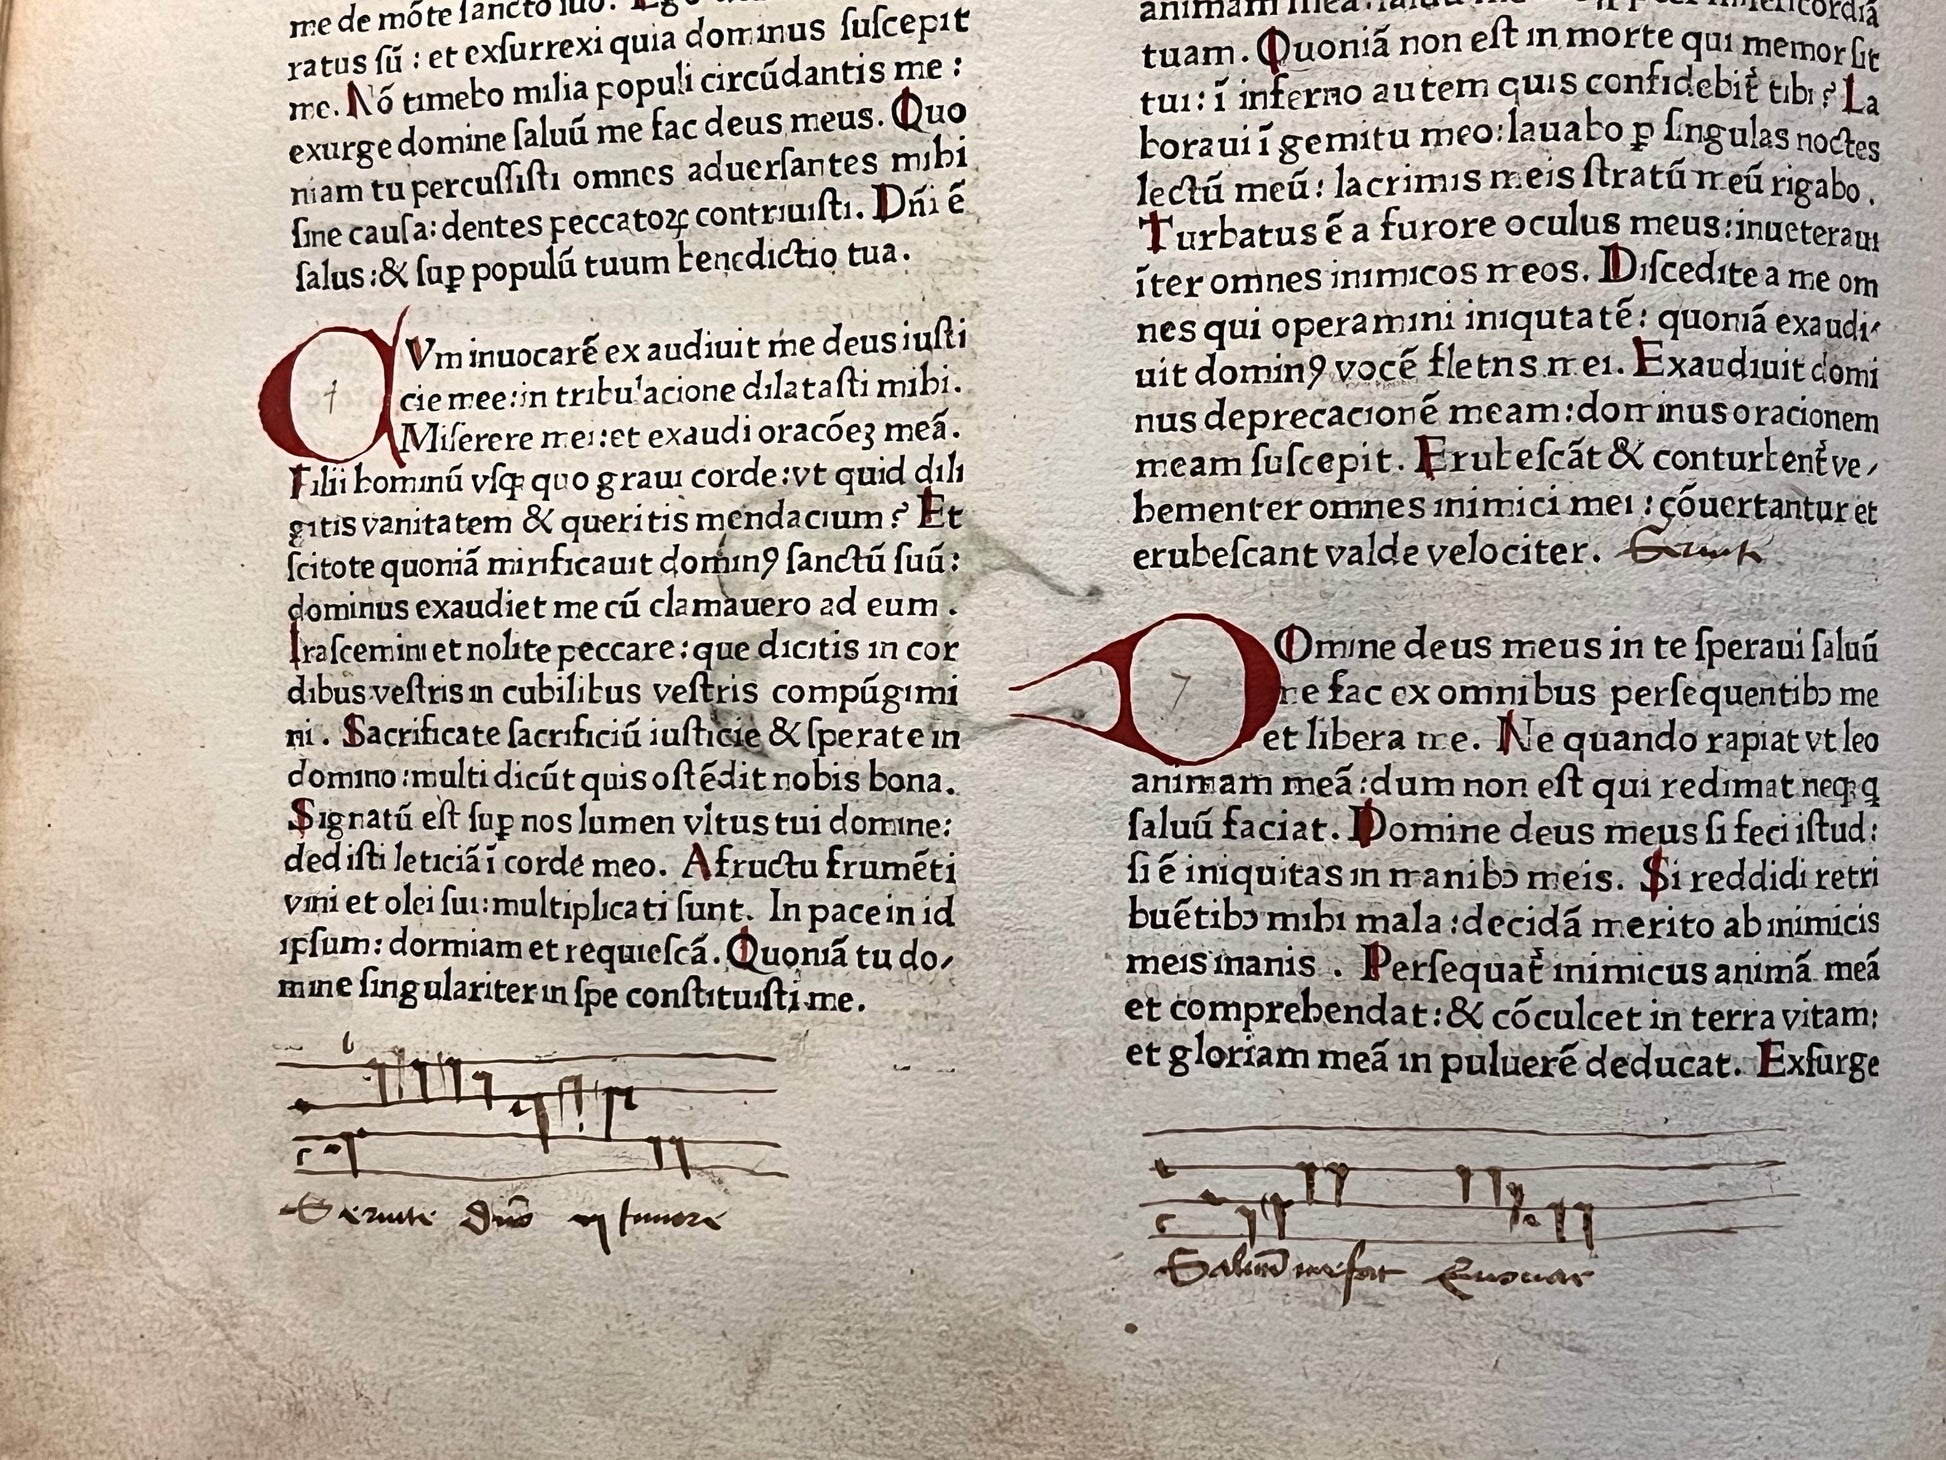 me de mõte sancto suo. Ego
ratus sũ : et exsurrexi quia dominus suscepit
me. Nõ timebo milia populi circũdantis me :
exurge domine saluũ me fac deus meus. Quo
niam tu percussisti omnes aduersantes mihi
sine causa: dentes peccatoꝝ contriuisti. Dñi ẽ
salus :& suꝑ populũ tuum benedictio tua.
CVm inuocarẽ exaudiuit me deus iusti
cie mee: in tribulacione dilatasti mihi.
Miserere mei: et exaudi oracõeꝫ meã.
Filii hominũ vsqꝫ quo graui corde: vt quid dili
gitis vanitatem & queritis mendacium? Et
scitote quoniã mirificauit dominꝰ sanctũ suũ:
dominus exaudiet me cũ clamauero ad eum.
Irascemini et nolite peccare: que dicitis in cor
dibus vestris in cubilibus vestris compũgimi
ni. Sacrificate sacrificiũ iusticie & sperate in
domino: multi dicũt quis ostẽdit nobis bona.
Signatũ est suꝑ nos lumen vltus tui domine:
dedisti leticiã ĩ corde meo. A fructu frumẽti
vini et olei sui: multiplicati sunt. In pace in id
ipsum: dormiam et requiescã. Quoniã tu do⸗
mine singulariter in spe constituisti me.
Seruite dño in timore
animam mea
misericordiã
tuam. Quoniã non est in morte qui memor sit
tui: ĩ inferno autem quis confidebit̃ tibi? La
boraui ĩ gemitu meo: lauabo ꝑ singulas noctes
lectũ meũ: lacrimis meis stratũ meũ rigabo.
Turbatus ẽ a furore oculus meus: inueteraui
ĩter omnes inimicos meos. Discedite a me om
nes qui operamini iniqutatẽ: quoniã exaudi⸗
uit dominꝰ vocẽ fletns mei. Exaudiuit domi
nus deprecacionẽ meam: dominus oracionem
meam suscepit. Erubescãt & conturbent̃ ve⸗
hementer omnes inimici mei : cõuertantur et
erubescant valde velociter. Seruit
DOmine deus meus in te speraui saluũ
me fac ex omnibus persequentibꝰ me
et libera me. Ne quando rapiat vt leo
animam meã: dum non est qui redimat neqꝫ q
saluũ faciat. Domine deus meus si feci istud:
si ẽ iniquitas in manibꝰ meis. Si reddidi retri
buẽtibꝰ mihi mala: decidã merito ab inimicis
meis inanis. Persequat̃ inimicus animã meã
et comprehendat: & cõculcet in terra vitam:
et gloriam meã in puluerẽ deducat. Exsurge
Saluũ me fac Euouae